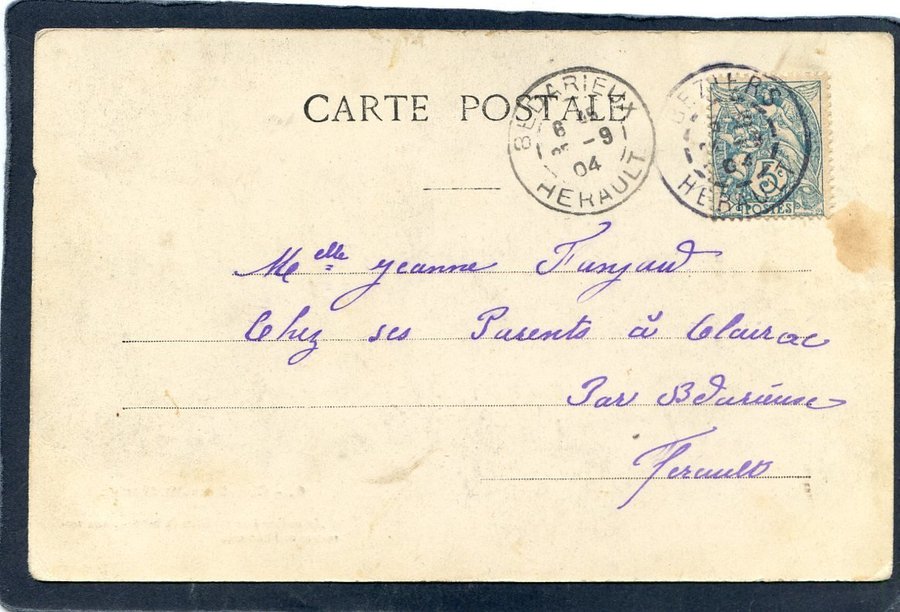 CARTE POSTALE
BEDARIEUX
6
-9
04
HERAULT
BEZIERS
HERAULT
5
POSTES
Melle Jeanne
Chez ses Parents à Clairac
Par Bédarieux
Herault